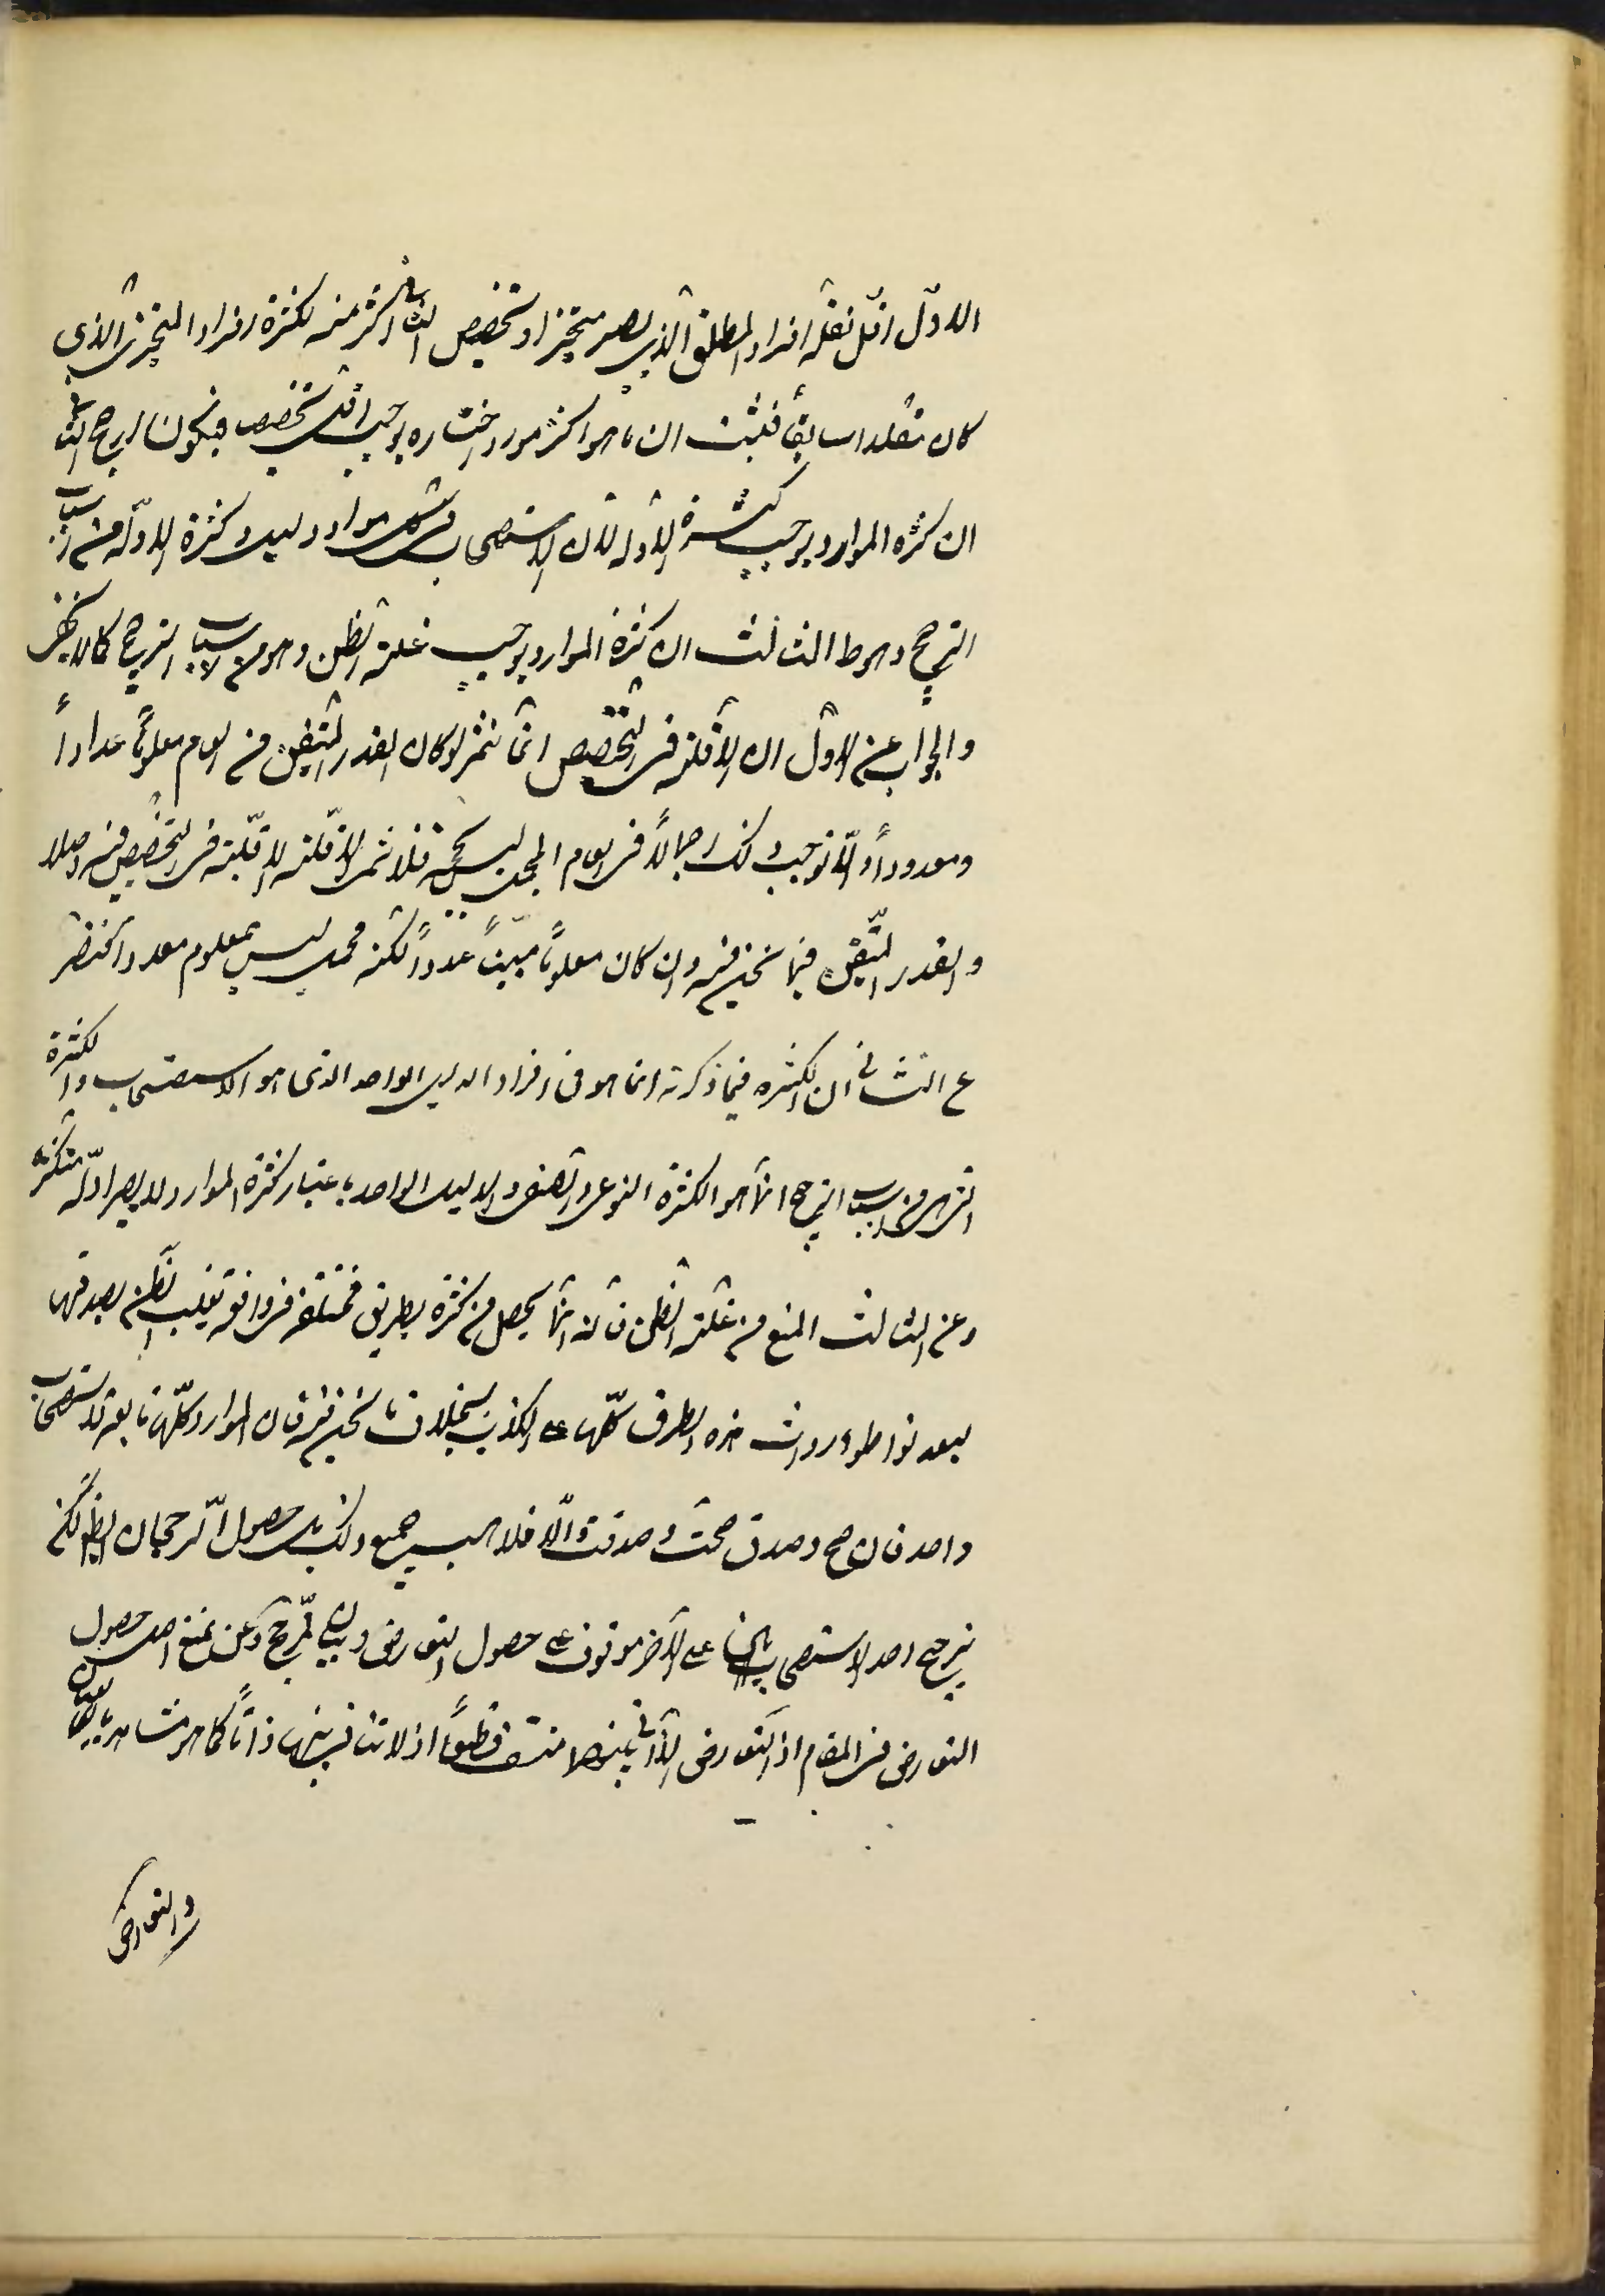 الاول اقل لقلة افراد المطلق الذي يصير متجزيا وتخصيص الثاني اكثر منه لكثرة افراد المتجزي الذي
كان مقلدا سابقا فثبت ان ما هو اكثر مورد اختياره يوجب اقل تخصيصا فيكون ارجح الثاني
ان كثرة الموارد يوجب كثرة الادلة لان الاستصحاب في كل مورد دليل وكثرة الادلة من اسباب
الترجيح وهو ط الثالث ان كثرة الموارد يوجب غلبة الظن وهو من اسباب الترجيح كما لا يخفى
والجواب عن الاول ان الاقلية في التخصيص انما تثمر لو كان القدر المتيقن من العام معلوما عدادا
ومعدودا والا توجب ذلك اجمالا في العام المجمل ليس بحجة فلا تثمر الاقلية في التخصيص فيه اصلا
والقدر المتيقن فيما نحن فيه وان كان معلوما مبينا عددا لكنه مجمل ليس بمعلوم معدودا كما تنظر
ع الثاني ان الكثرة فيما ذكرته انما هو في افراد الدليل الواحد الذي هو الاستصحاب والكثرة
التي هي من اسباب الترجيح انما هو الكثرة النوعي والصنفي والدليل الواحد باعتبار كثرة الموارد لا يصير ادلة متكثرة
وعن الثالث المنع من غلبة الظن فانه انما يحصل من كثرة بطريق مختلفة في واقعة تغلب الظن بصدقها
لبعد تواطؤ رواة هذه الطرف كلها على الكذب بخلاف ما نحن فيه فان الموارد كلها تابعة لاستصحاب
واحد فان صح وصدق صحت وصدقت والا فلا الجميع ولذلك حصول الرجحان الظ لكنه
ترجيح احد الاستصحابين على الاخر موقوف على حصول التعارض وبيان المرجح ونحن نمنع اصل حصول
التعارض في المقام اذ التعارض الذاتي بينهما منتف قطعا اذ لا تنافي بينها ذاتا كما هو مشاهد بالعيان
والتعارض